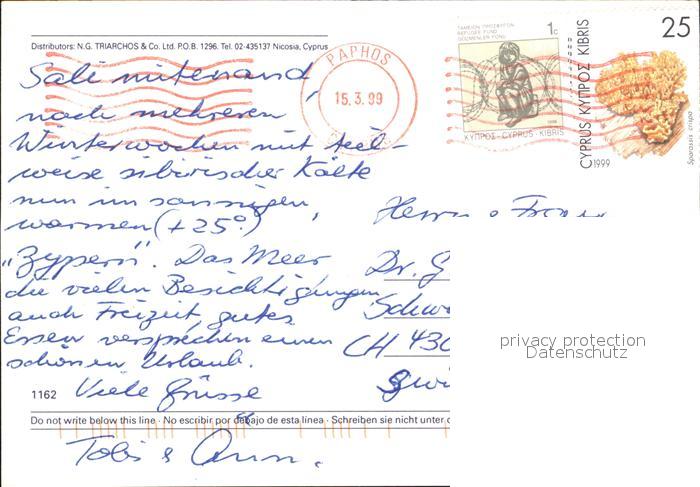 Distributors: N.G. TRIARCHOS & Co. Ltd. P.O.B. 1296. Tel. 02-435137 Nicosia, Cyprus
Sali mitenand,
nach mehreren
Winterwochen mit teil-
weise sibirischer Kälte
nun im sonnigen,
warmen (+25°)
"Zypern". Das Meer
die vielen Besichtigungen
auch Freizeit, gutes
Essen versprechen einen
schönen Urlaub.
1162 Viele Grüsse
Do not write below this line · No escribir por debajo de esta línea · Schreiben sie nicht unter
Tobis &
PAPHOS
15.3.99
ΤΑΜΕΙΟΝ ΠΡΟΣΦΥΓΩΝ
REFUGEE FUND
GÖÇMENLER FONU
1c
ΚΥΠΡΟΣ·CYPRUS·KIBRIS
25
CYPRUS ΚΥΠΡΟΣ KIBRIS
1999
Sparassis crispa
Herrn
Dr. G
Schw
CH 430
privacy protection
Datenschutz